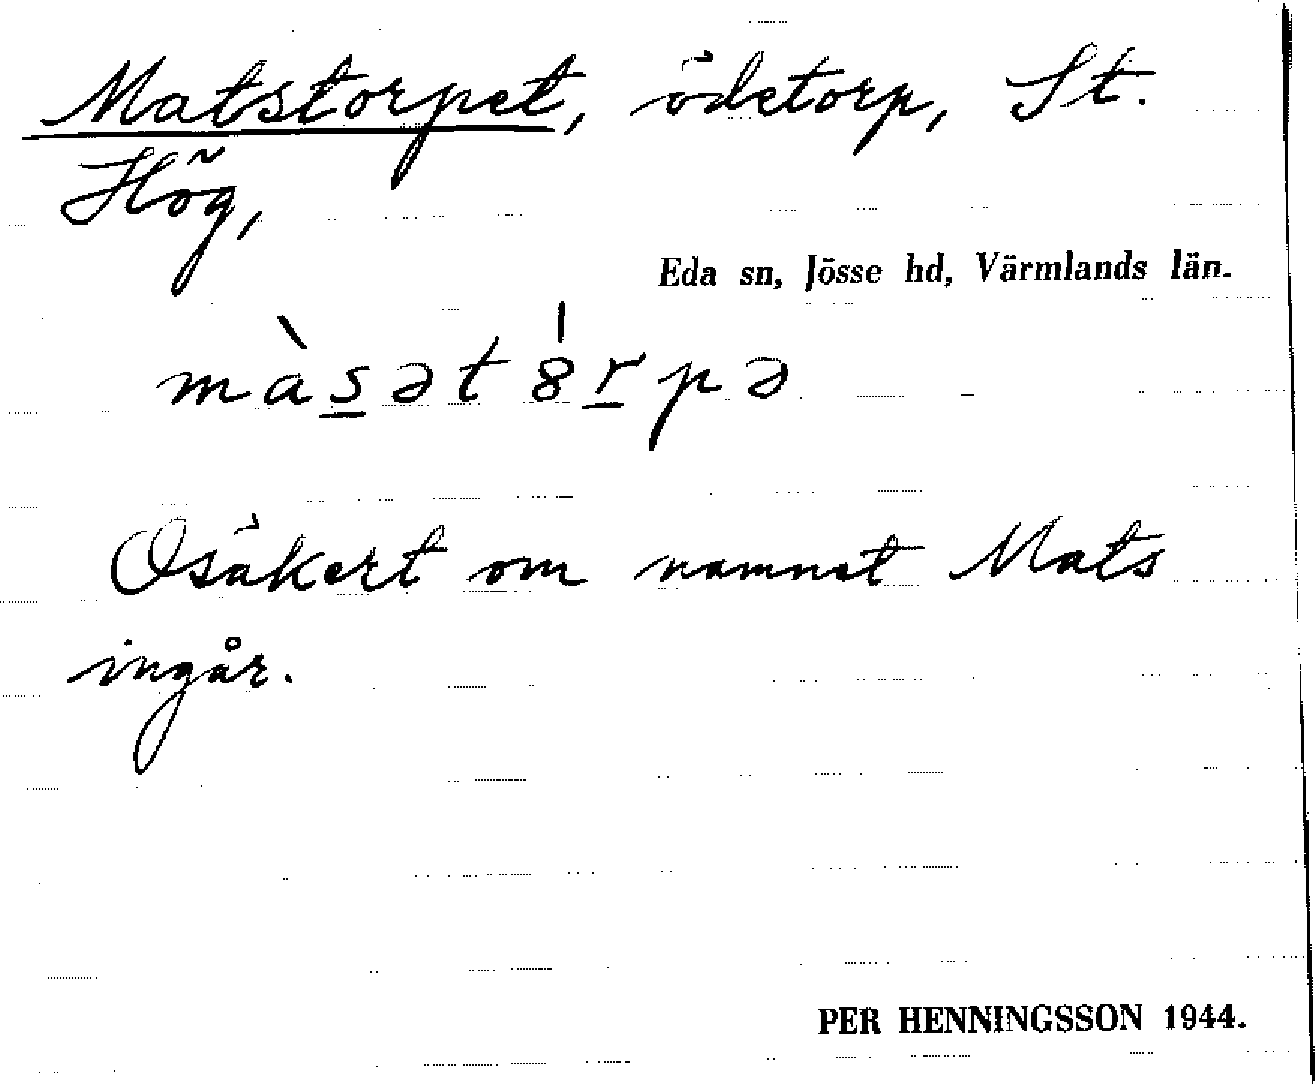 Matstorpet, ödetorp, St.
Hög,
Eda sn, Jösse hd, Värmlands län.
màs̲ət8́r̲pə
Osäkert om namnet Mats
ingår.
PER HENNINGSSON 1944.